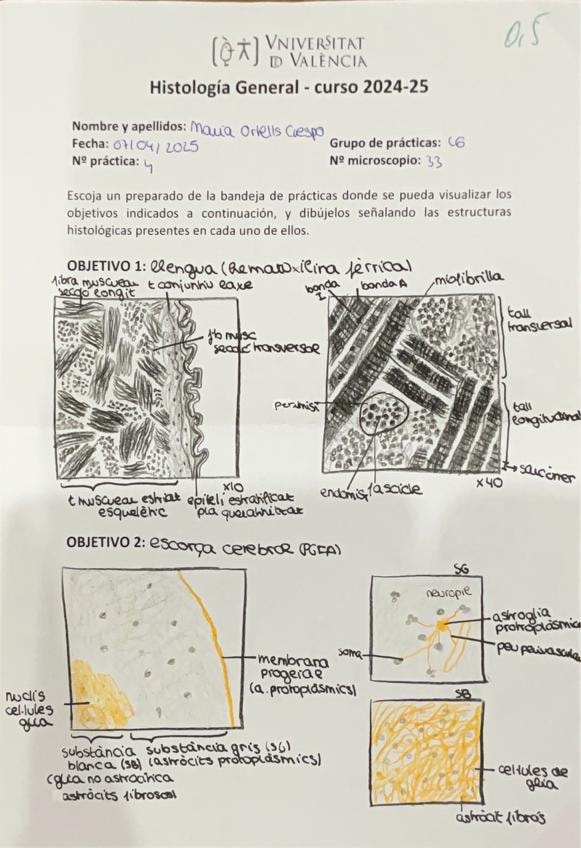 0,5
VNIVERSITAT
ID VALÈNCIA
Histología General - curso 2024-25
Nombre y apellidos: Maria Ortells Crespo
Fecha: 07/04/2025
Grupo de prácticas: L6
Nº práctica: 4
Nº microscopio: 33
Escoja un preparado de la bandeja de prácticas donde se pueda visualizar los
objetivos indicados a continuación, y dibújelos señalando las estructuras
histológicas presentes en cada uno de ellos.
OBJETIVO 1: llengua (Hematoxilina fèrrica)
fibra muscular
secció longit
t conjuntiu laxe
fib musc
secció transversal
t muscular estriat
esquelètic
epiteli estratificat
pla queratinitzat
x10
banda
I
banda A
miofibrilla
tall
transversal
perimisi
tall
longitudinal
sarcòmer
endomisi
fascicle
x40
OBJETIVO 2: escorça cerebral (PGFA)
membrana
(a. protoplàsmics)
nuclis
cèl·lules
glia
substància
blanca (SB)
(glia no astrocítica
astròcits fibrosos)
substància gris (SG)
(astròcits protoplàsmics)
SG
neuropil
soma
astroglia
protoplàsmica
peu perivascular
SB
cèl·lules de
glia
astròcit fibrós